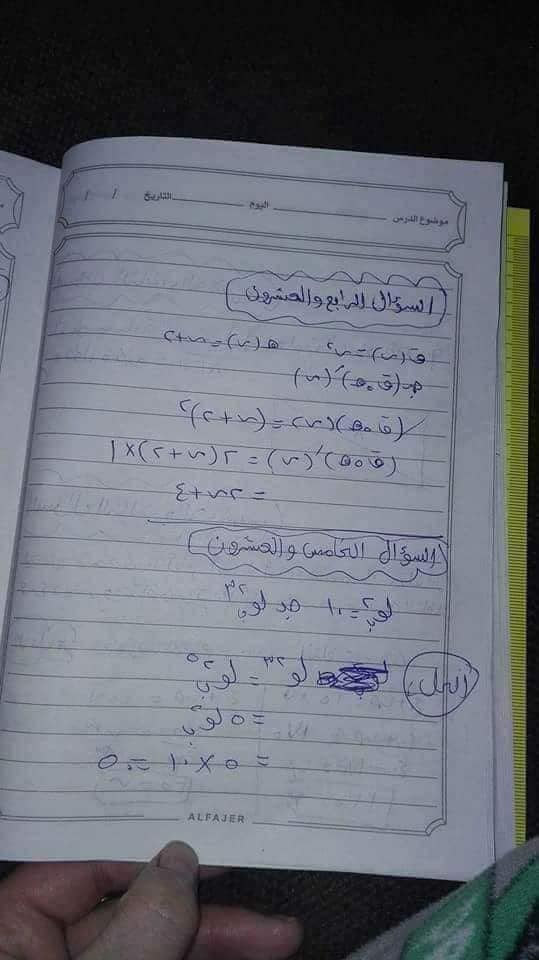 موضوع الدرس ــــــــ اليوم ــــــــ التاريخ / /
السؤال الرابع والعشرون
ق(س) = س٢ هـ(س) = س+٢
جد (ق٥هـ)′(س)
(ق٥هـ)(س) = (س+٢)٢
(ق٥هـ)′(س) = ٢(س+٢)×١
= ٢س+٤
السؤال الخامس والعشرون
لو٢ب = ١٠ جد لو٣٢ب
الحل، لو٣٢ب = لو٢٥ب
= ٥ لو٢ب
= ٥ × ١٠ = ٥٠
ALFAJER